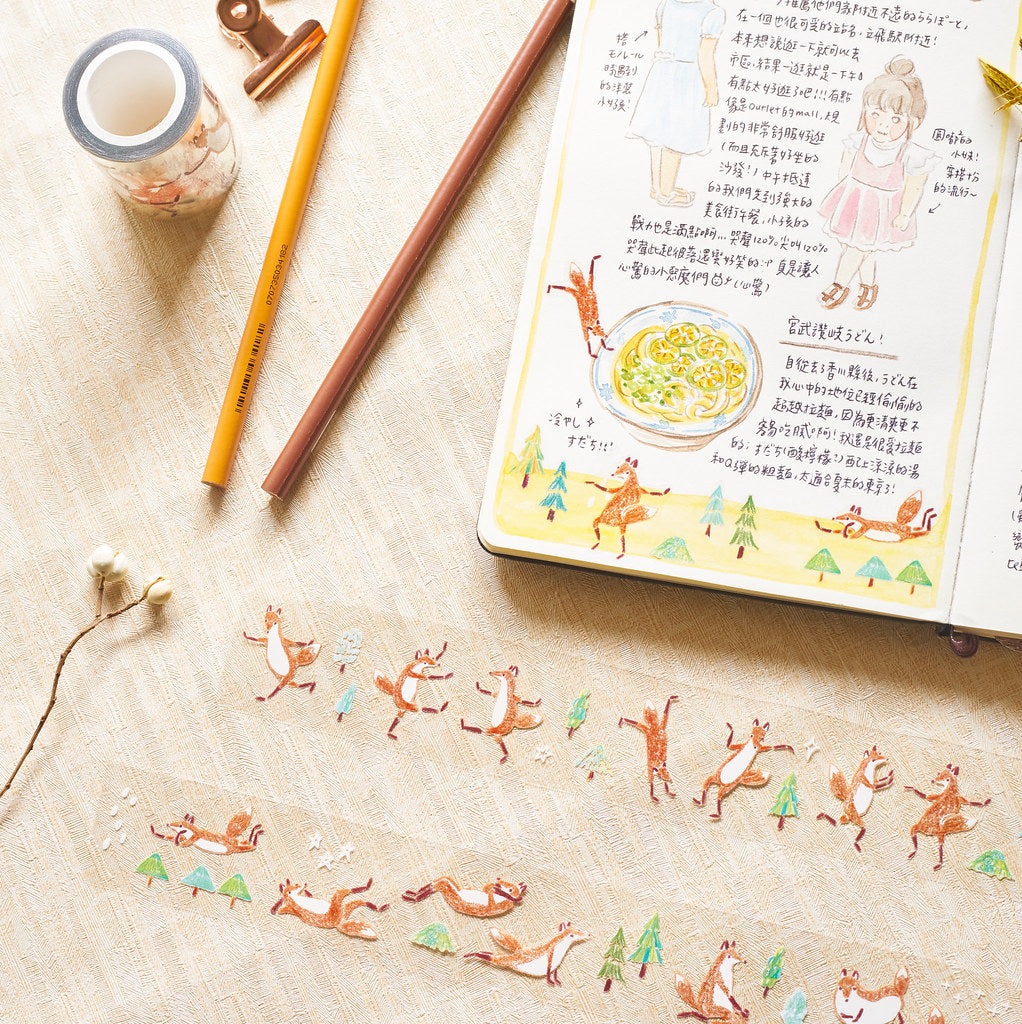 推薦他們家附近不遠的ららぽーと,
在一個也很可愛的站名,立飛駅附近!
本來想說逛一下就可以去
市區,結果一逛就是一下午
有點太好逛了吧!!!有點
像是outlet的mall,規
劃的非常舒服好逛
(而且充斥著好坐的
沙發!)中午抵達
的我們先到強大的
美食街午餐,小孩的
戰力也是滿點啊...哭聲120%尖叫120%
哭聲此起彼落還蠻好笑的 真是讓人
心驚的小惡魔們 (心驚)
搭
モノレール
時遇到
的洋裝
小妹!
圓嘟嘟的
小妹!
穿搭十分
的流行~
宮武讃岐うどん!
自從去了香川縣後,うどん在
我心中的地位已經偷偷的
超越拉麵,因為更清爽更不
容易吃膩啊!我還是很愛拉麵
的;すだち(酸檸檬?)配上涼涼的湯
和Q彈的粗麵,太適合夏末的東京了!
冷やし
すだち!!!
070735034182